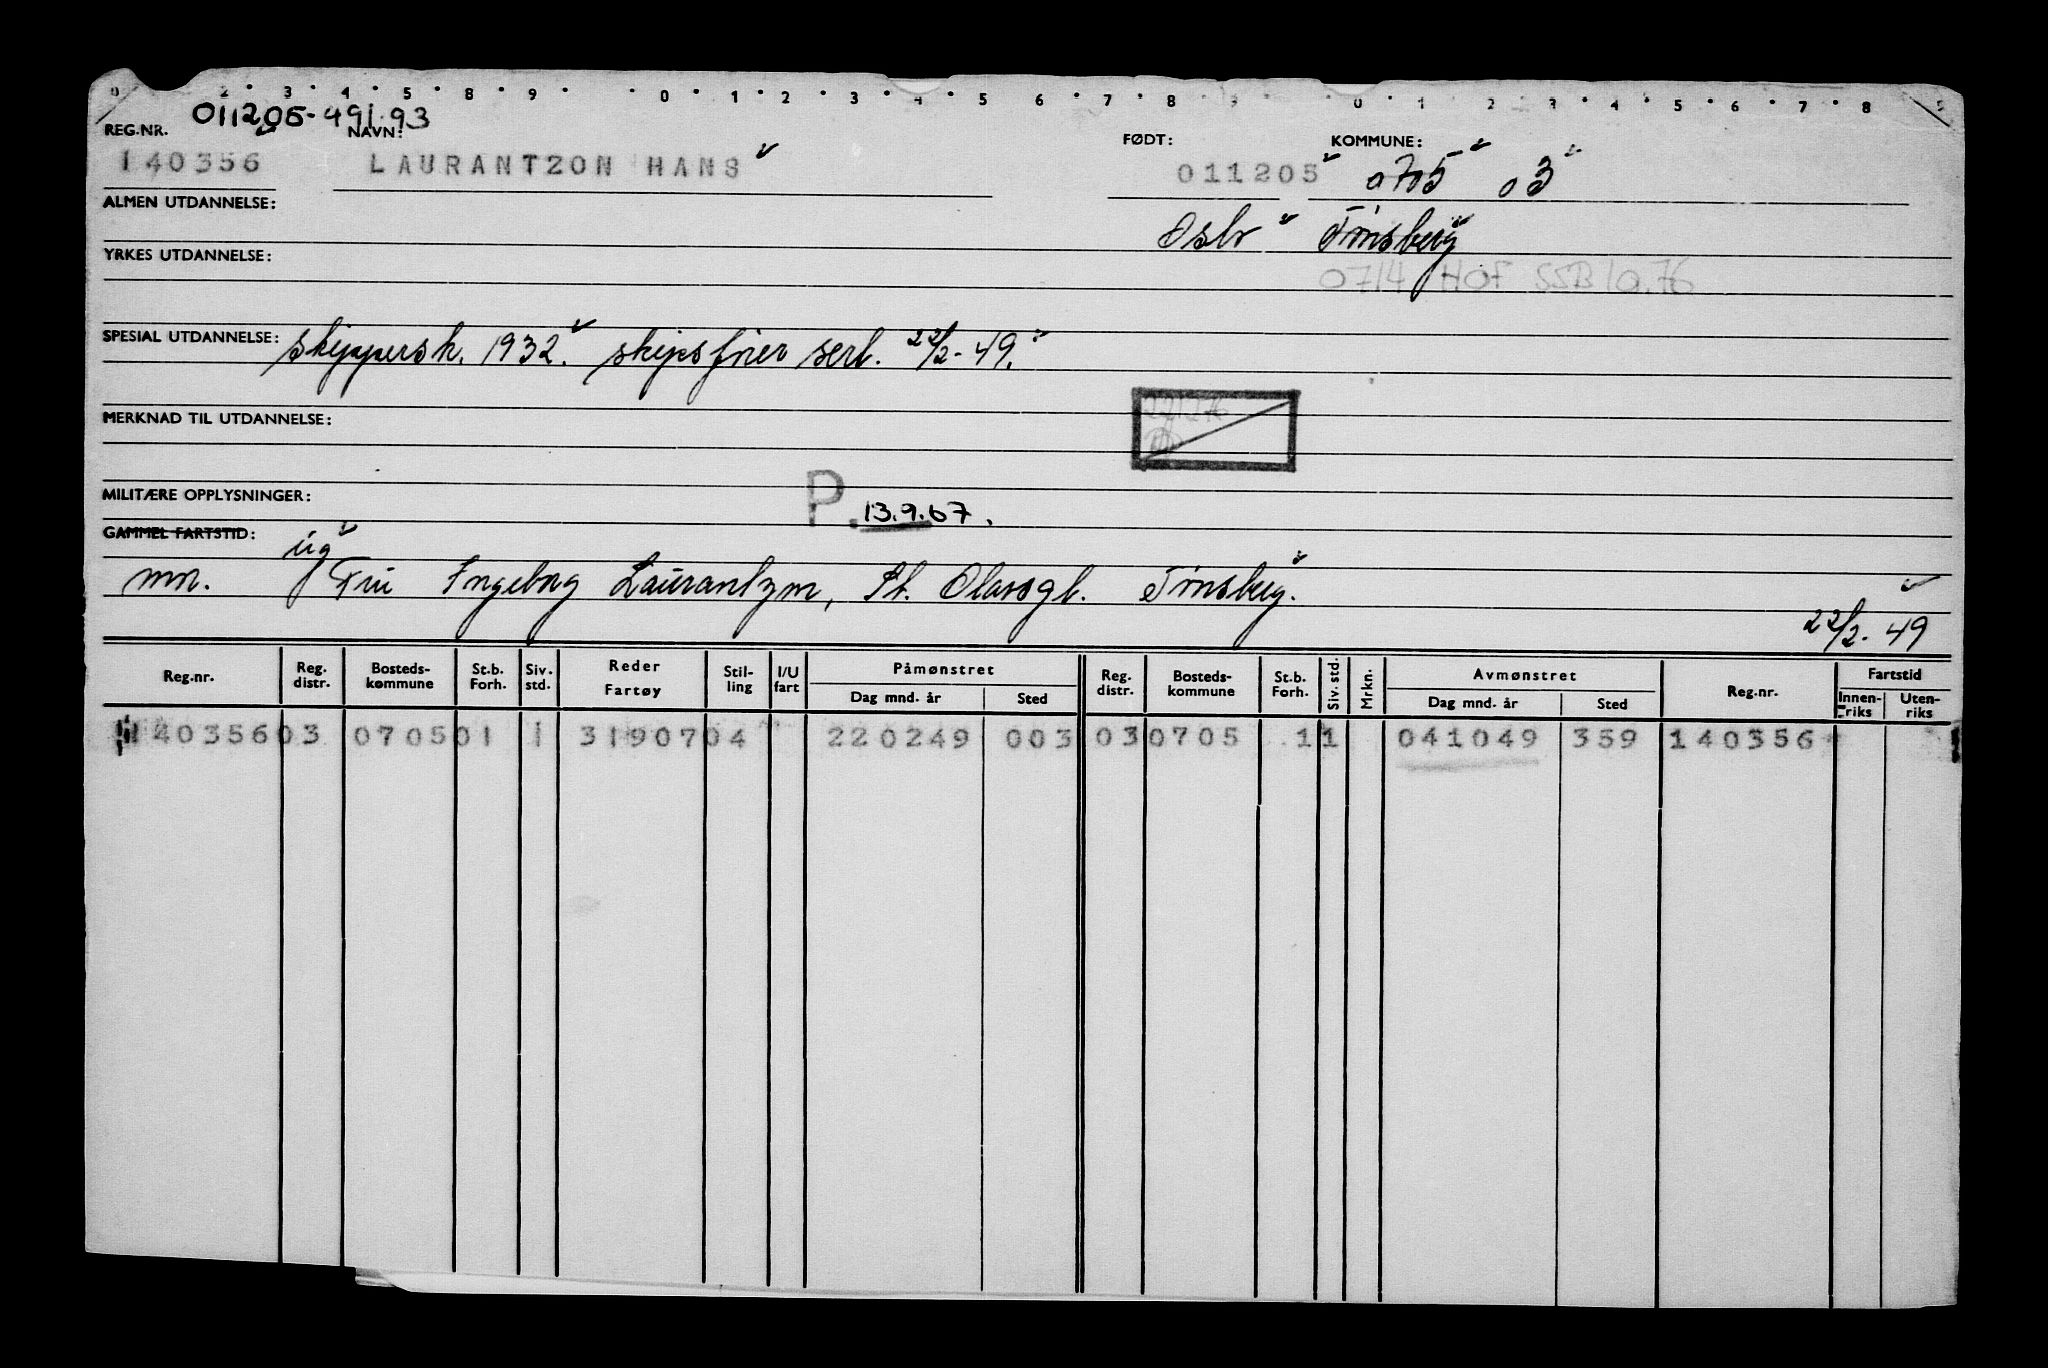 0 2 · 3 · 4 · 5 · 8 · 9 · · 0 · 1 · 2 · 3 · 4 5 6 · 7 · 8 · 9 · · 0 · 1 2 · 3 · 4 · 5 · 6 · 7 · 8 9
011205-491.93
REG.NR. NAVN: FØDT: KOMMUNE:
140356 LAURANTZON HANS 011205 0705 03
ALMEN UTDANNELSE:
Oslo Tønsberg
YRKES UTDANNELSE:
0714 HOF SSB 10.76
SPESIAL UTDANNELSE: skippersk. 1932. skipsfører serl. 22/2-49.
MERKNAD TIL UTDANNELSE:
MILITÆRE OPPLYSNINGER:
P. 13.9.67.
GAMMEL FARTSTID:
ug
mn. Fru Ingeborg Laurantzon, St. Olavsgt. Tønsberg.
22/2-49
Reg.nr. Reg. distr. Bosteds-kommune St.b. Forh. Siv. std. Reder Fartøy Stil-ling I/U fart Påmønstret Dag mnd. år Sted Reg. distr. Bosteds-kommune St.b. Forh. Siv. std. Mrkn. Avmønstret Dag mnd. år Sted Reg.nr. Fartstid Innen-riks Uten-riks
140356 03 0705 01 1 31907 04 220249 003 03 0705 1 1 041049 359 140356